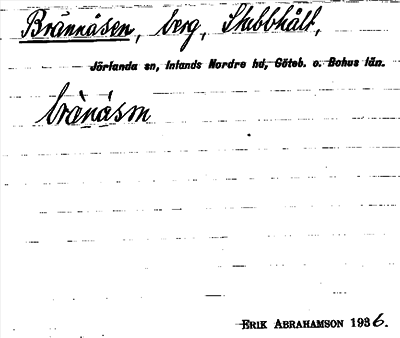 Brännåsen, berg, Stubbhält,
Jörlanda sn, Inlands Nordre hd, Göteb. o. Bohus län.
brä̀nåsm
ERIK ABRAHAMSON 1936.